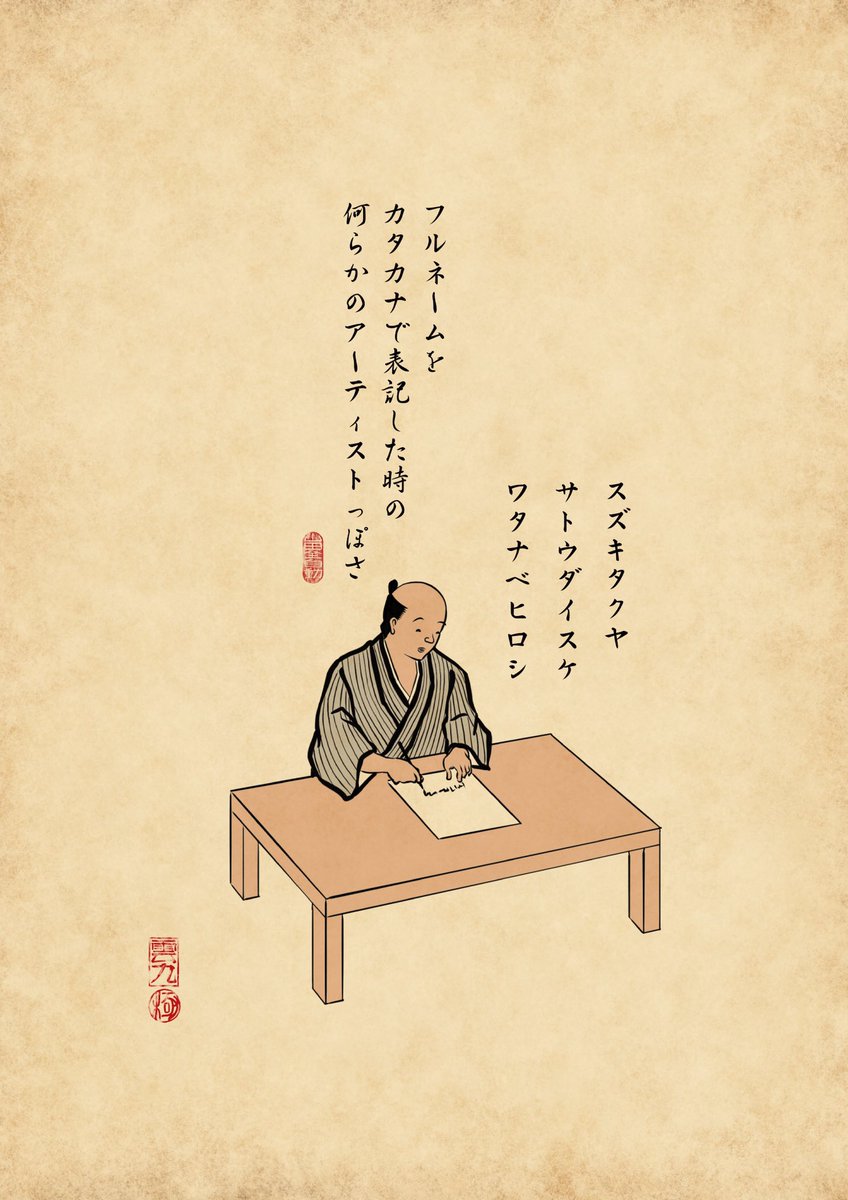 フルネームを
カタカナで表記した時の
何らかのアーティストっぽさ
スズキタクヤ
サトウダイスケ
ワタナベヒロシ